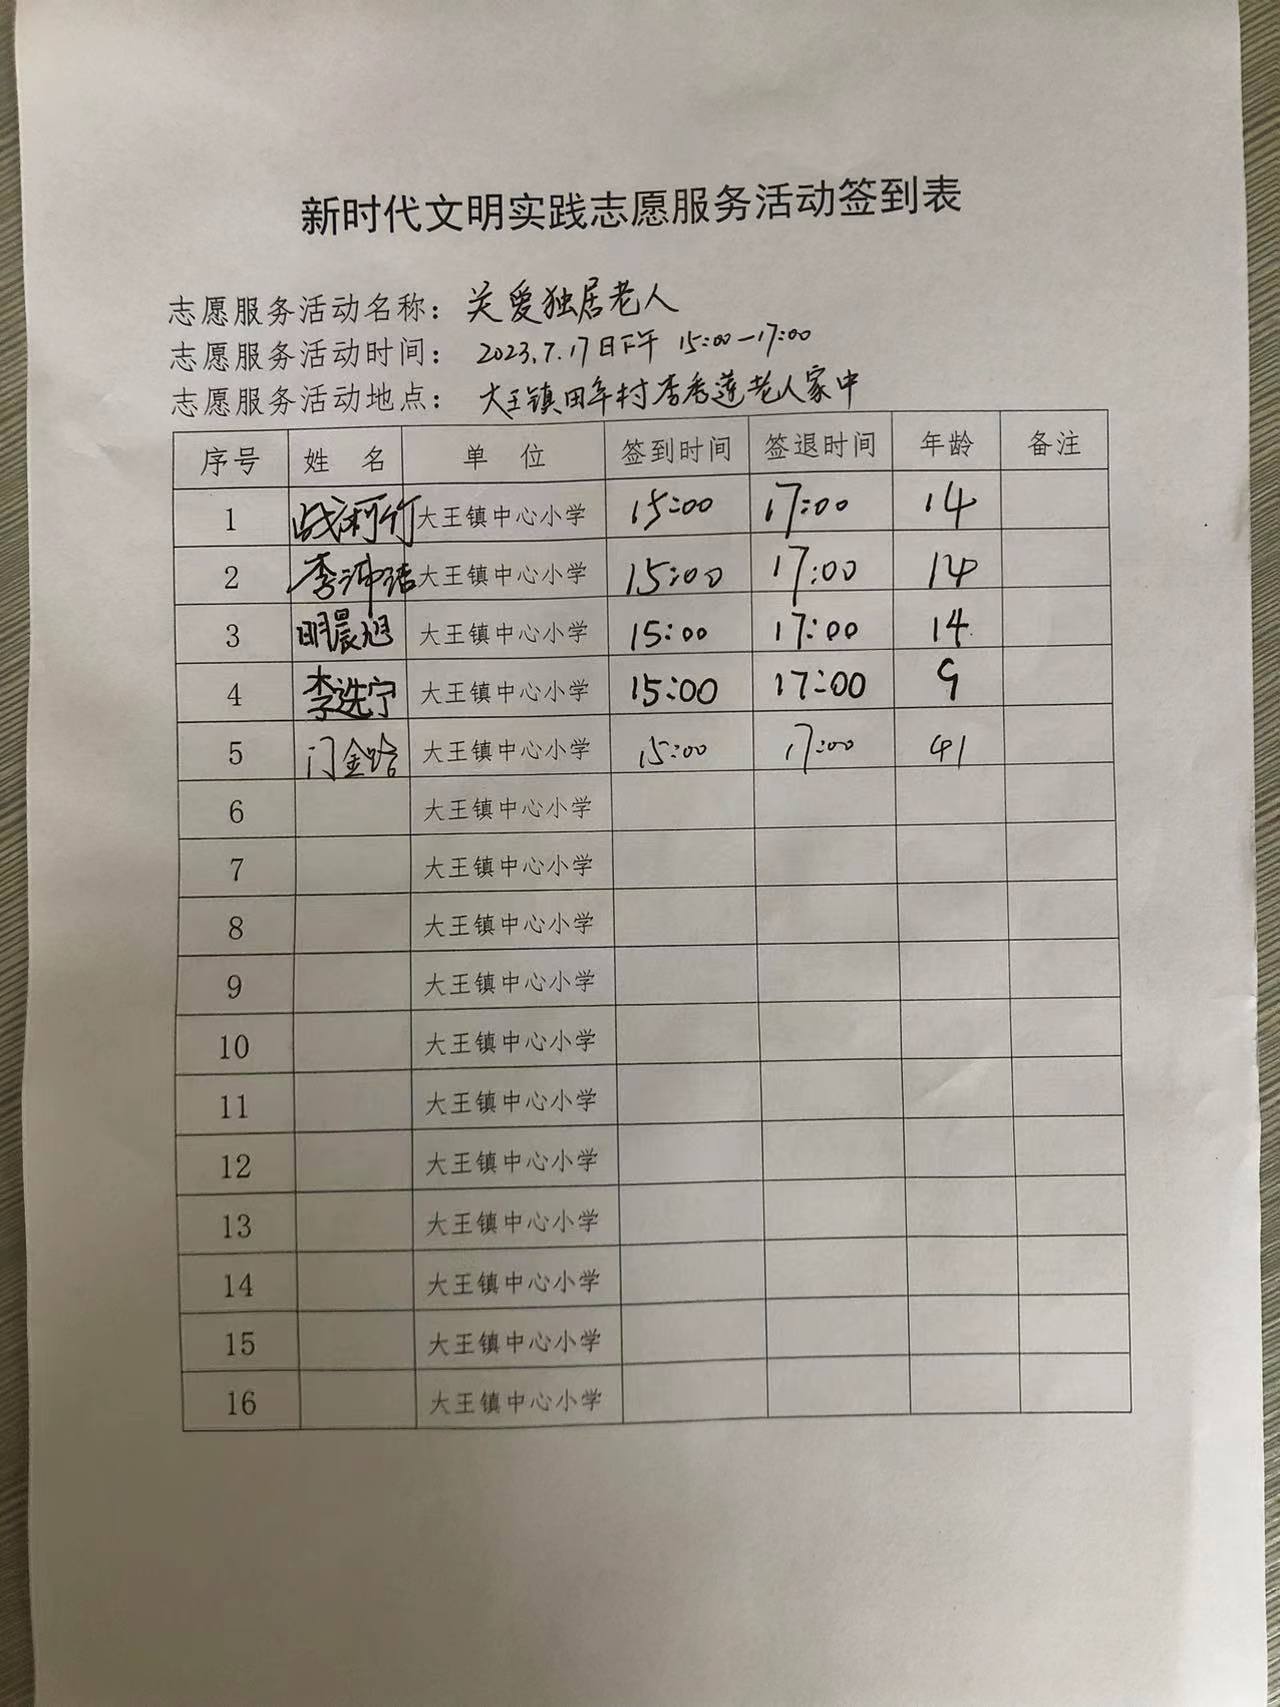 新时代文明实践志愿服务活动签到表
志愿服务活动名称：关爱独居老人
志愿服务活动时间：2023.7.17日下午 15:00—17:00
志愿服务活动地点：大王镇田牟村李秀莲老人家中
序号 姓 名 单 位 签到时间 签退时间 年龄 备注
1 大王镇中心小学 15:00 17:00 14
2 李沛洁 大王镇中心小学 15:00 17:00 14
3 明晨旭 大王镇中心小学 15:00 17:00 14
4 李选宁 大王镇中心小学 15:00 17:00 9
5 大王镇中心小学 15:00 17:00 41
6 大王镇中心小学
7 大王镇中心小学
8 大王镇中心小学
9 大王镇中心小学
10 大王镇中心小学
11 大王镇中心小学
12 大王镇中心小学
13 大王镇中心小学
14 大王镇中心小学
15 大王镇中心小学
16 大王镇中心小学